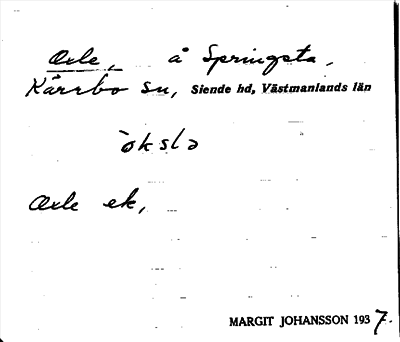 Oxle, å Springsta,
Kärrbo sn, Siende hd, Västmanlands län
òkslə
Oxle ek,
MARGIT JOHANSSON 1937.